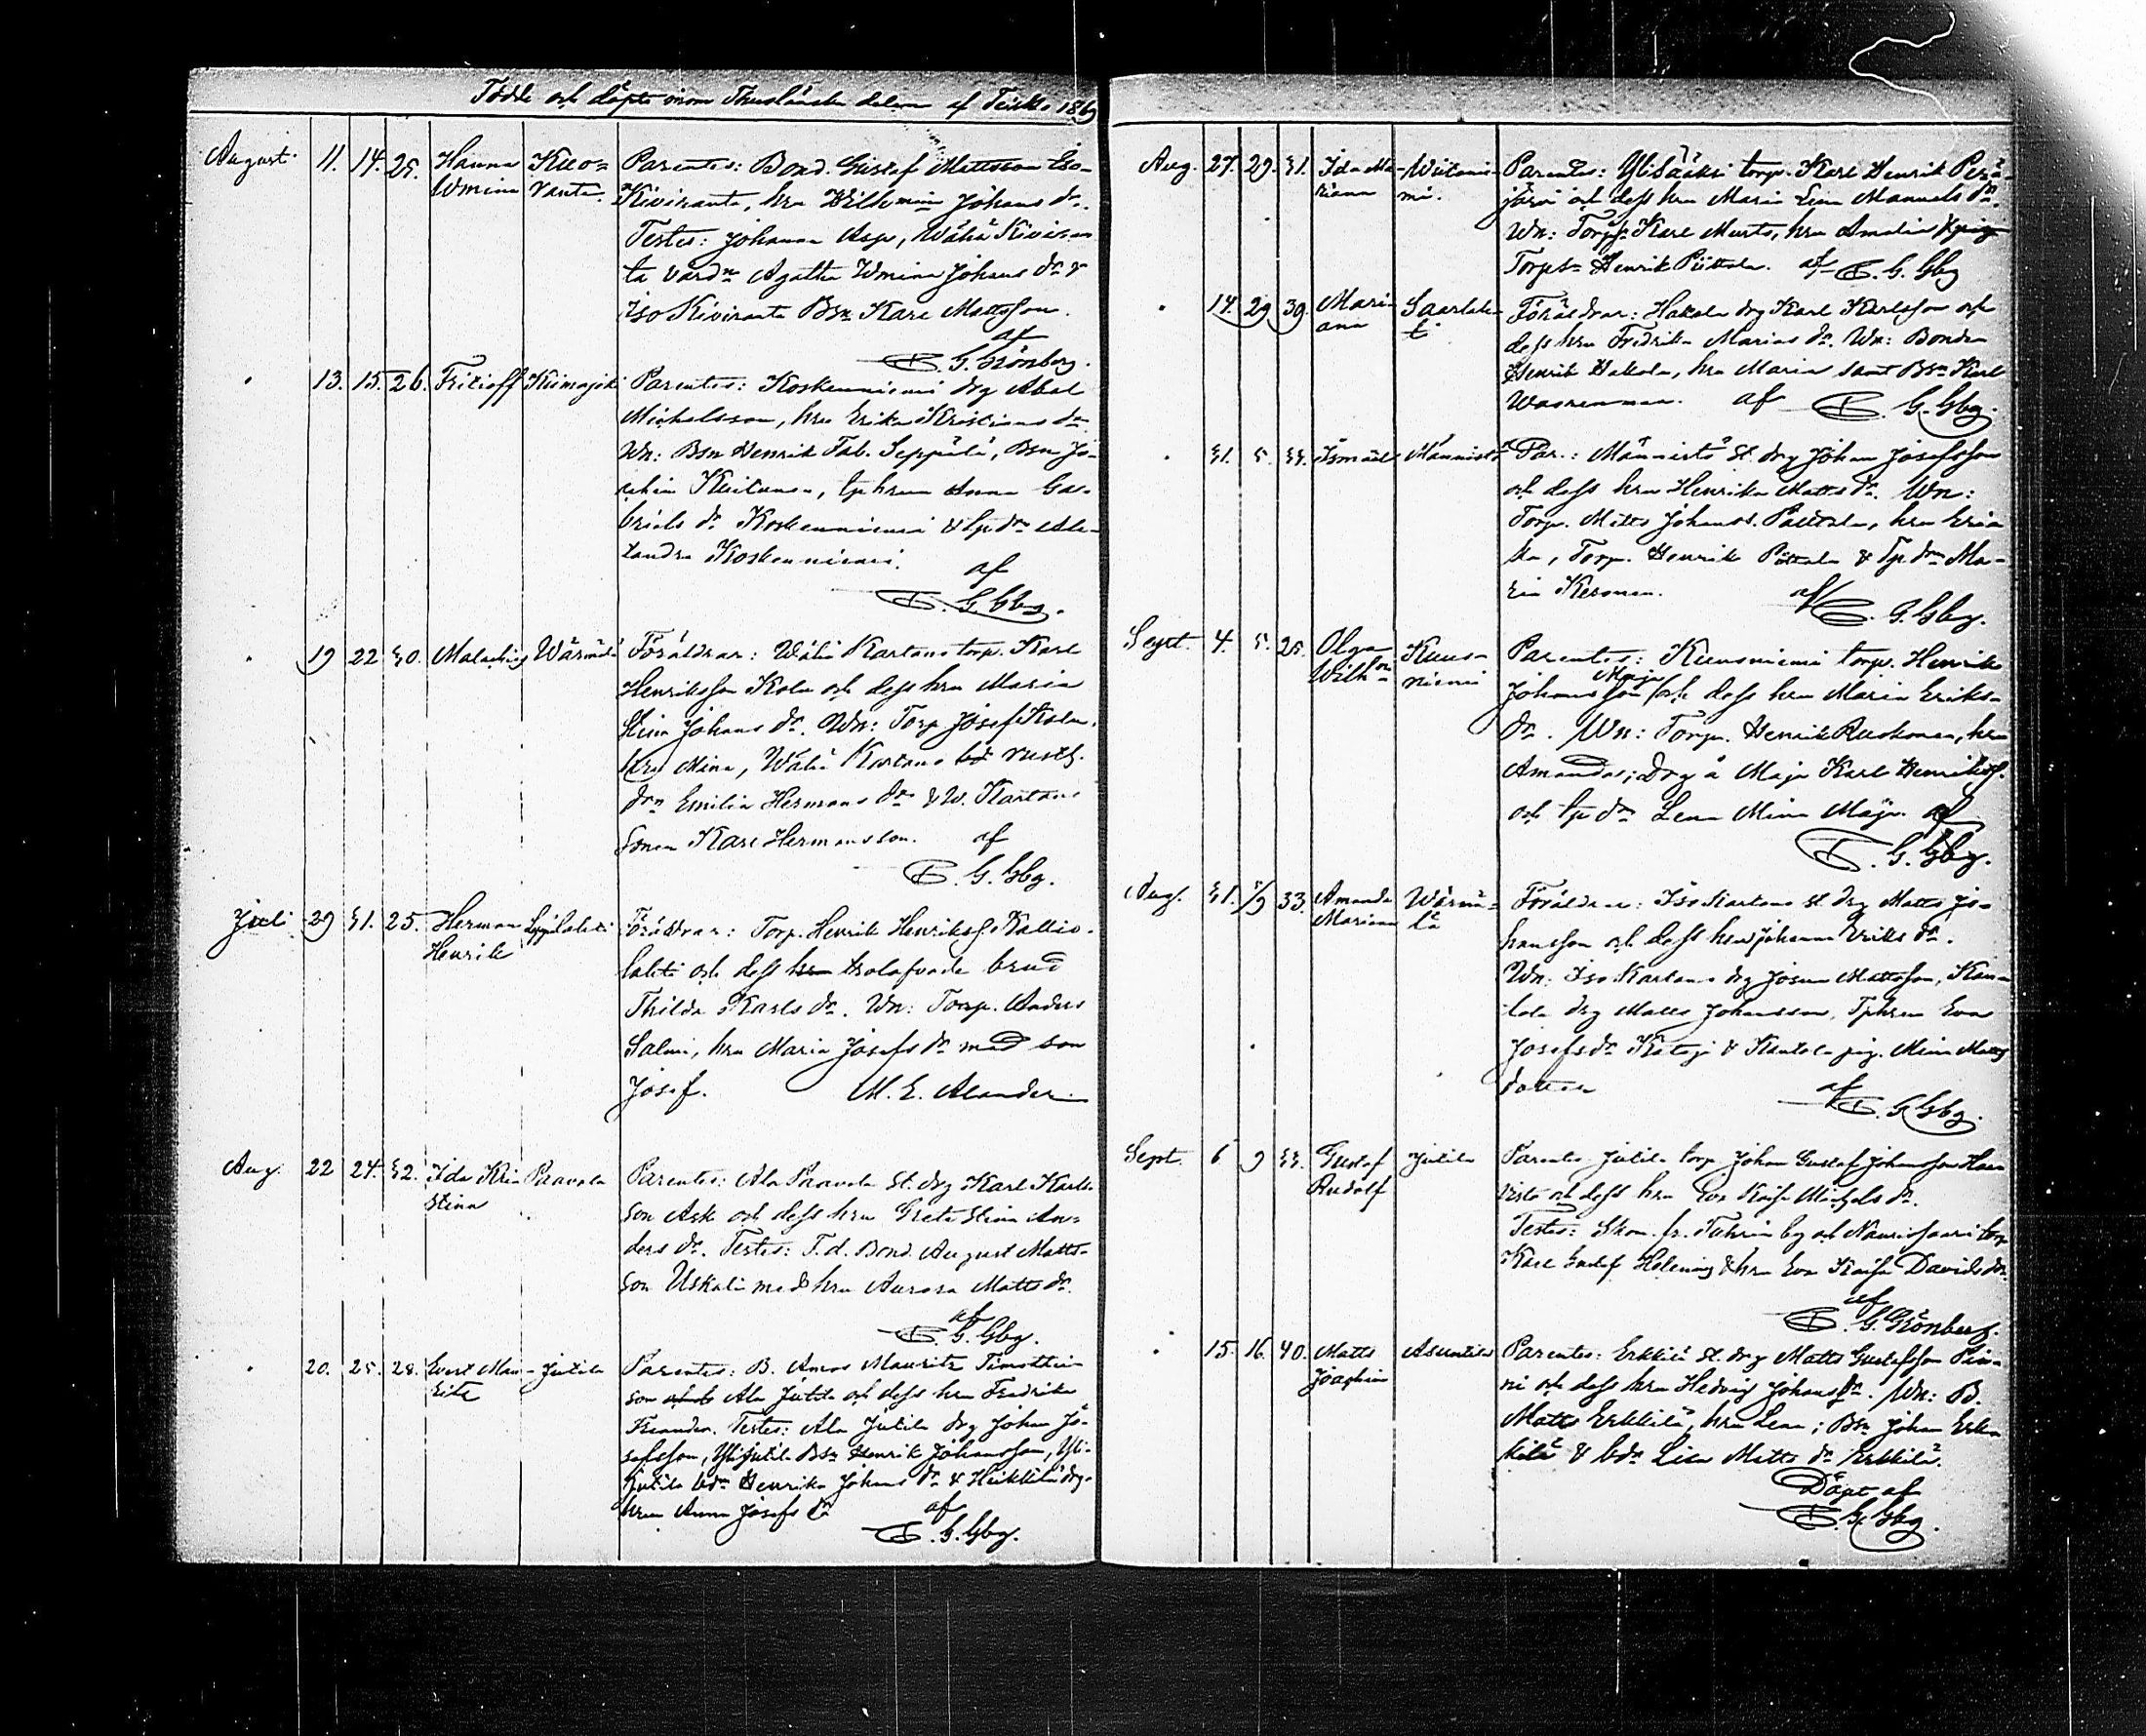 Födde och döpte inom delen af 1869
August 11. 14. 25. Hanna Kuo- Parentes: Bond. Gustaf Mattsson Iso-
Wmina ranta. Kiviranta, hru Wilhmina Johans dr.
Testes: Johanna Asp, Wähä Kiviran
ta värdn Agatha Wmina Johans dr &
Iso Kiviranta Bsn Karl Mattsson.
af
G Grönberg.
13. 15. 26. Fritioff Kiimajoki Parentes: Koskenniemi drg Abel
Michelsson, hru Erika Kristians dr
Wn: Bsn Henrik Fab. Seppälä, Bsn Jo-
akim Kuitunen, tp hrun Anna Ga-
briels dr Koskenniemi & tp drn Alex-
andra Koskenniemi.
af
G. Gbg.
19 22 30. Malachias Wärmä Föräldrar: Wähä Kartano torp. Karl
Henriksson Kola och dess hru Maria
Stina Johans dr. Wn: Torp Josef Kola,
hru Mina, Wähä Kartano rusth.
drn Emilia Hermans dr & W. Kartano
sonen Karl Hermansson. af
G. Gbg.
Juli 29 31. 25. Herman Leppilahti Föräldrar: Torp. Henrik Henrikss. Kallio-
Henrik lahti och dess hru trolofvade brud
Thilda Karls dr. Wn: Torp. Anders
Salmi, hru Maria Josefs dr med son
Josef. M. E. Alander.
Aug. 22 24. 32. Ida Kri- Paavola Parentes: Ala Paavola st. drg Karl Karls-
stina son Ask och dess hru Greta Stina An-
ders dr. Testes: F.d. Bond. August Matts-
son Uskali med hru Aurora Matts dr.
af
G. Gbg.
20. 25. 28. Evert Mau- Jutila Parentes: B. Amos Mauritz Timothei-
ritz son Ala Jutila och dess hru Fredrika
Testes: Ala Jutila drg Johan Jo-
sefsson, Yli Jutila Bsn Henrik Johansson, Yli-
Jutila bdr Henrika Johans dr & Heikkilä drg.
hrun Anna Josefs dr af
G. Gbg.
Aug. 27. 29. 31. Ida Ma- Wiitanie- Parentes: Ylisääksi torp. Karl Henrik Perä-
riana mi. järvi och dess hru Maria Lena Manuels dr.
Wn: Torp. Karl Murto, hru Amalia
Torpsn Henrik Püttala. af G. Gbg
14. 29 39. Mari- Saarlah- Föräldrar: Hakola drg Karl Karlsson och
ana ti dess hru Fredrika Marias dr. Wn: Bonden
Henrik Hakola, hru Maria samt Bsn Karl
af G. Gbg.
31. 5. 33. Ismael Männistö Par.: Männistö st. drg Johan Josefsson
och dess hru Henrika Matts dr. Wn:
Torp. Matts Johanss. Püttala, hru Eri-
ka, Torp. Henrik Püttala & Tp. drn Ma-
ria Kesonen. af
G. Gbg.
Sept. 4. 5. 25. Olga Kuus- Parentes: Kuusniemi torp. Henrik
Wilhna niemi Johansson Maja och dess hru Maria Eriks-
dr. Wn: Torpn. Henrik Ruokonen, hru
Amanda; Drg å Maja Karl Henrikss.
och tp dr Lena Mina Maja. af
G. Gbg.
Aug. 31. 5/9 33. Amanda Wärmä- Föräldrar: Iso Kartano st. drg Matts Jo-
Mariana lä hansson och dess hru Johanna Eriks dr.
Wn: Iso Kartano drg Josua Mattsson, Kan-
tola drg Matts Johansson, Tphrun Eva
Josefs dr & Kantola pig. Mina Matts
dotter af
G Gbg.
Sept. 6 9 33. Gustaf Jutila Parentes Jutila torp Johan Gustaf Johansson Haa-
Rudolf visto och dess hru Eva Kaisa Michels dr.
Testes: Skom. fr. Tuhrin by och Naurissaari torp
Karl Gustaf Helenius & hru Eva Kaisa Davids dr.
af
G. Grönberg.
15. 16. 40. Matts Asuntila Parentes: Erkkilä st. drg Matts Gustafsson Pin-
Joachim ni och dess hru Hedvig Johans dr. Wn: B.
Matts Erkkilä, hru Lena; Bsn Johan Erk-
kilä & bdr Lisa Matts dr Erkkilä.
Döpt af
G. Gbg.